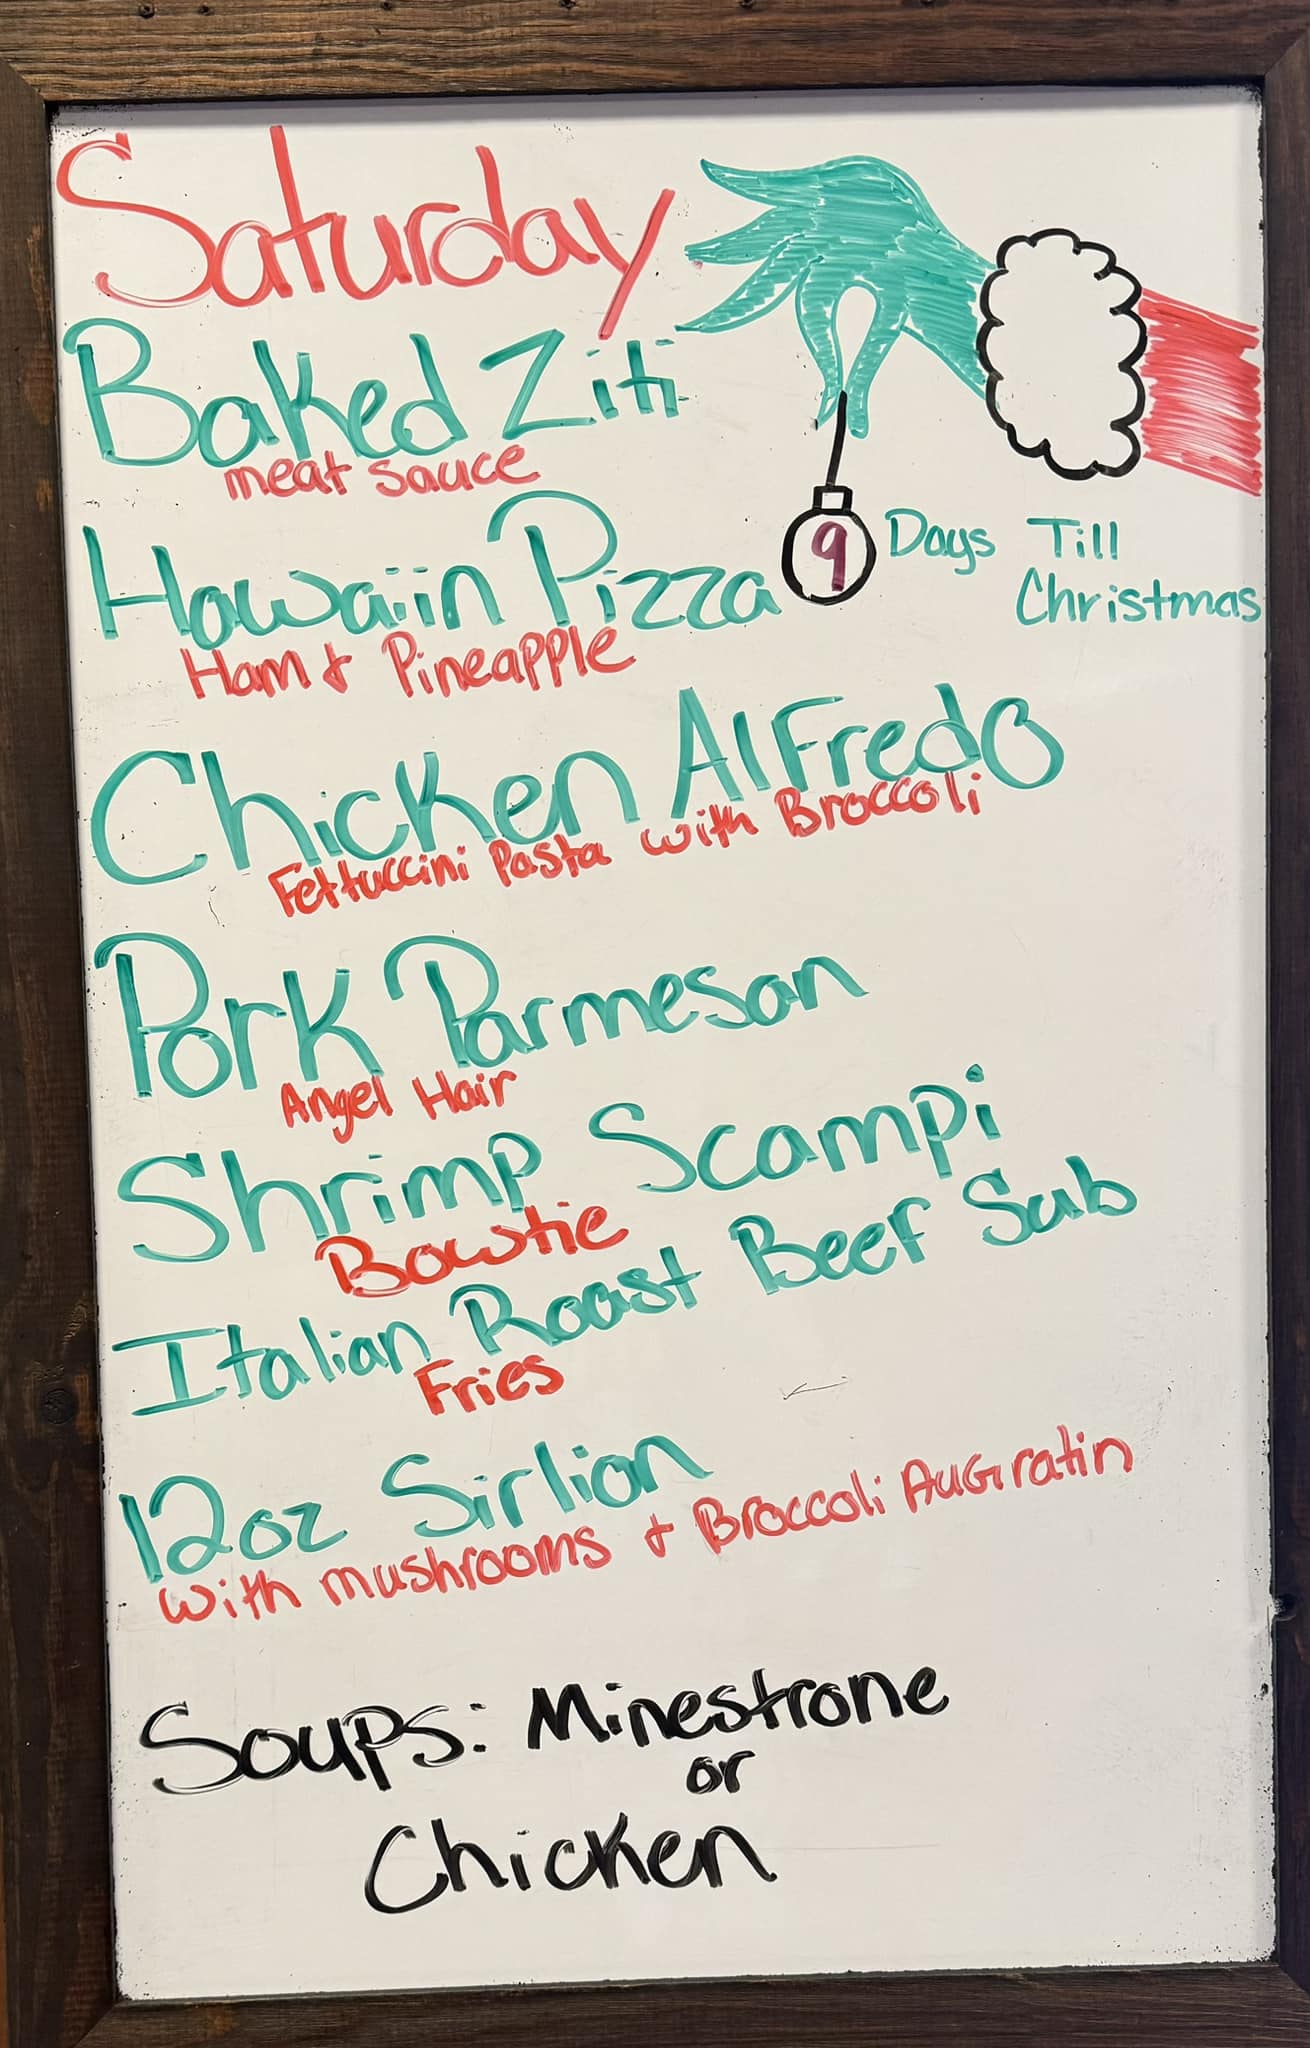 Saturday
Baked Ziti
meat sauce
Hawaiin Pizza
Ham & Pineapple
9 Days Till
Christmas
Chicken Alfredo
Fettuccini Pasta with Broccoli
Pork Parmesan
Angel Hair
Shrimp Scampi
Bowtie
Italian Roast Beef Sub
Fries
12oz Sirlion
with mushrooms & Broccoli AuGratin
Soups: Minestrone
or
Chicken